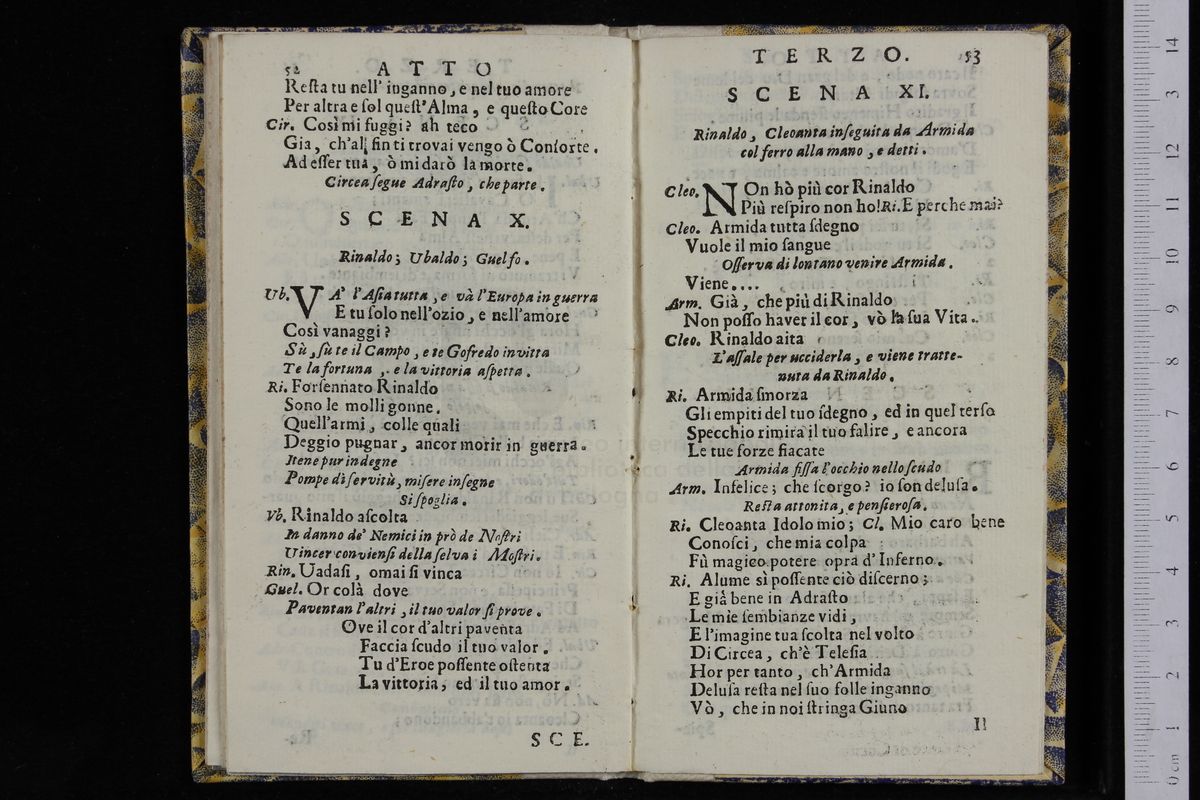 52 ATTO
Reſta tu nell' inganno, e nel tuo amore
Per altra e ſol queſt'Alma, e queſto Core
Cir. Così mi fuggi? ah teco
Gia, ch'al fin ti trovai vengo ò Conſorte.
Ad eſſer tua, ò mi darò la morte.
Circea ſegue Adraſto, che parte.
SCENA X.
Rinaldo; Ubaldo; Guelfo.
Ub. VA' l'Aſia tutta, e và l'Europa in guerra
E tu ſolo nell'ozio, e nell'amore
Così vanaggi?
Sù, ſù te il Campo, e te Gofredo invitta
Te la fortuna, e la vittoria aſpetta.
Ri. Forſennato Rinaldo
Sono le molli gonne.
Quell'armi, colle quali
Deggio pugnar, ancor morir in guerra.
Itene pur indegne
Pompe di ſervitù, miſere inſegne
Si ſpoglia.
Vb. Rinaldo aſcolta
In danno de' Nemici in prò de Noſtri
Uincer convienſi della ſelva i Moſtri.
Rin. Uadaſi, omai ſi vinca
Guel. Or colà dove
Paventan l'altri, il tuo valor ſi prove.
Ove il cor d'altri paventa
Faccia ſcudo il tuo valor.
Tu d'Eroe poſſente oſtenta
La vittoria, ed il tuo amor.
SCE.
TERZO. 53
SCENA XI.
Rinaldo, Cleoanta inſeguita da Armida
col ferro alla mano, e detti.
Cleo. NOn hò più cor Rinaldo
Più reſpiro non ho! Ri. E perche mai?
Cleo. Armida tutta ſdegno
Vuole il mio ſangue
Oſſerva di lontano venire Armida.
Viene....
Arm. Già, che più di Rinaldo
Non poſſo haver il cor, vò la ſua Vita..
Cleo. Rinaldo aita
L'aſſale per ucciderla, e viene tratte-
nuta da Rinaldo.
Ri. Armida ſmorza
Gli empiti del tuo ſdegno, ed in quel terſo
Specchio rimira il tuo falire, e ancora
Le tue forze fiacate
Armida fiſſa l'occhio nello ſcudo
Arm. Infelice; che ſcorgo? io ſon deluſa.
Reſta attonita, e penſieroſa.
Ri. Cleoanta Idolo mio; Cl. Mio caro bene
Conoſci, che mia colpa
Fù magico potere opra d'Inferno.
Ri. A lume sì poſſente ciò diſcerno;
E già bene in Adraſto
Le mie ſembianze vidi,
E l'imagine tua ſcolta nel volto
Di Circea, ch'è Teleſia
Hor per tanto, ch'Armida
Deluſa reſta nel ſuo folle inganno
Vò, che in noi ſtringa Giuno
Il